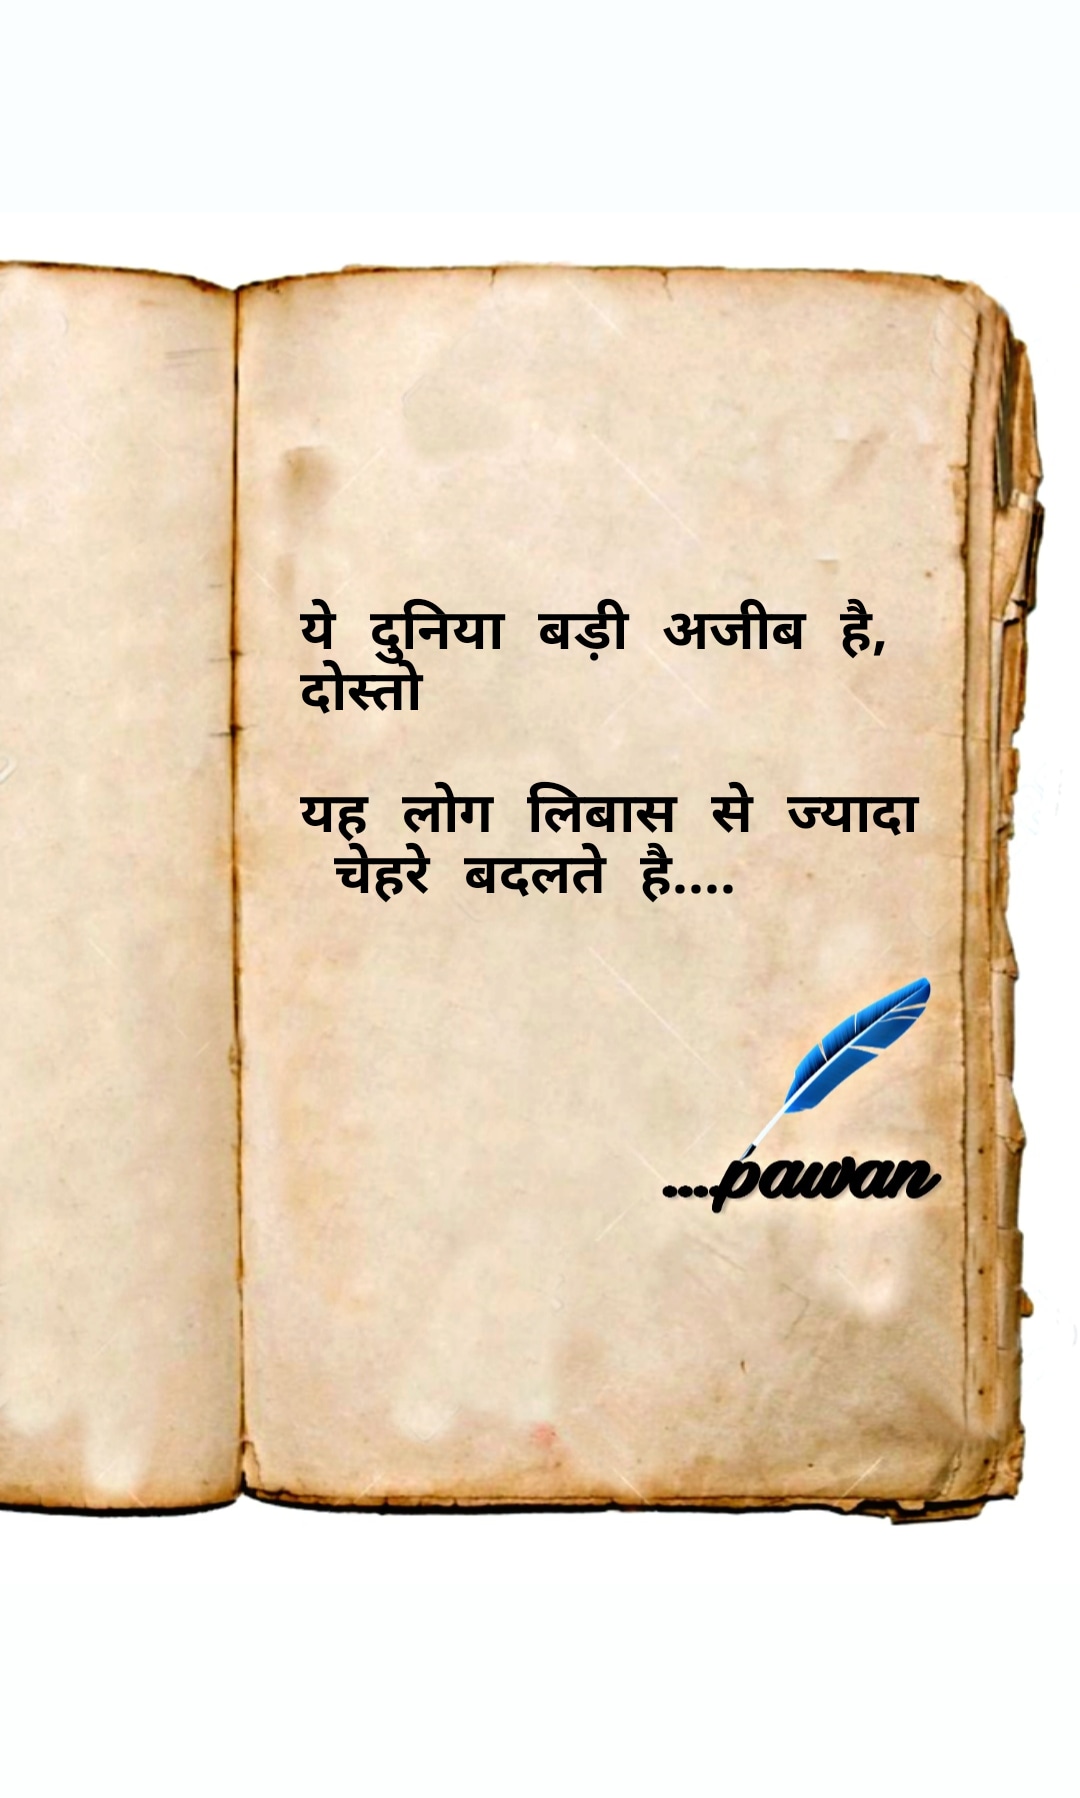 ये दुनिया बड़ी अजीब है,
दोस्तो
यह लोग लिबास से ज्यादा
चेहरे बदलते है....
....pawan